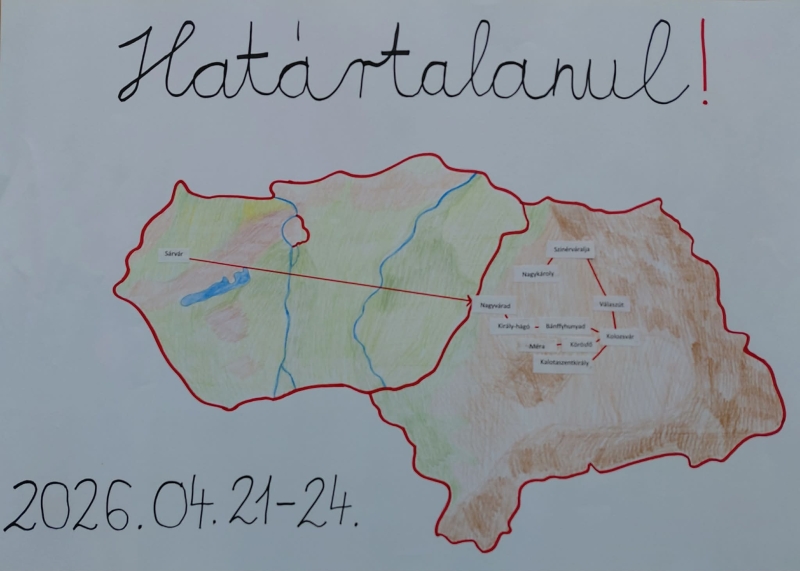 Határtalanul!
Sárvár
Szinérváralja
Nagykároly
Nagyvárad
Válaszút
Király-hágó
Bánffyhunyad
Kolozsvár
Méra
Körösfő
Kalotaszentkirály
2026.04.21-24.